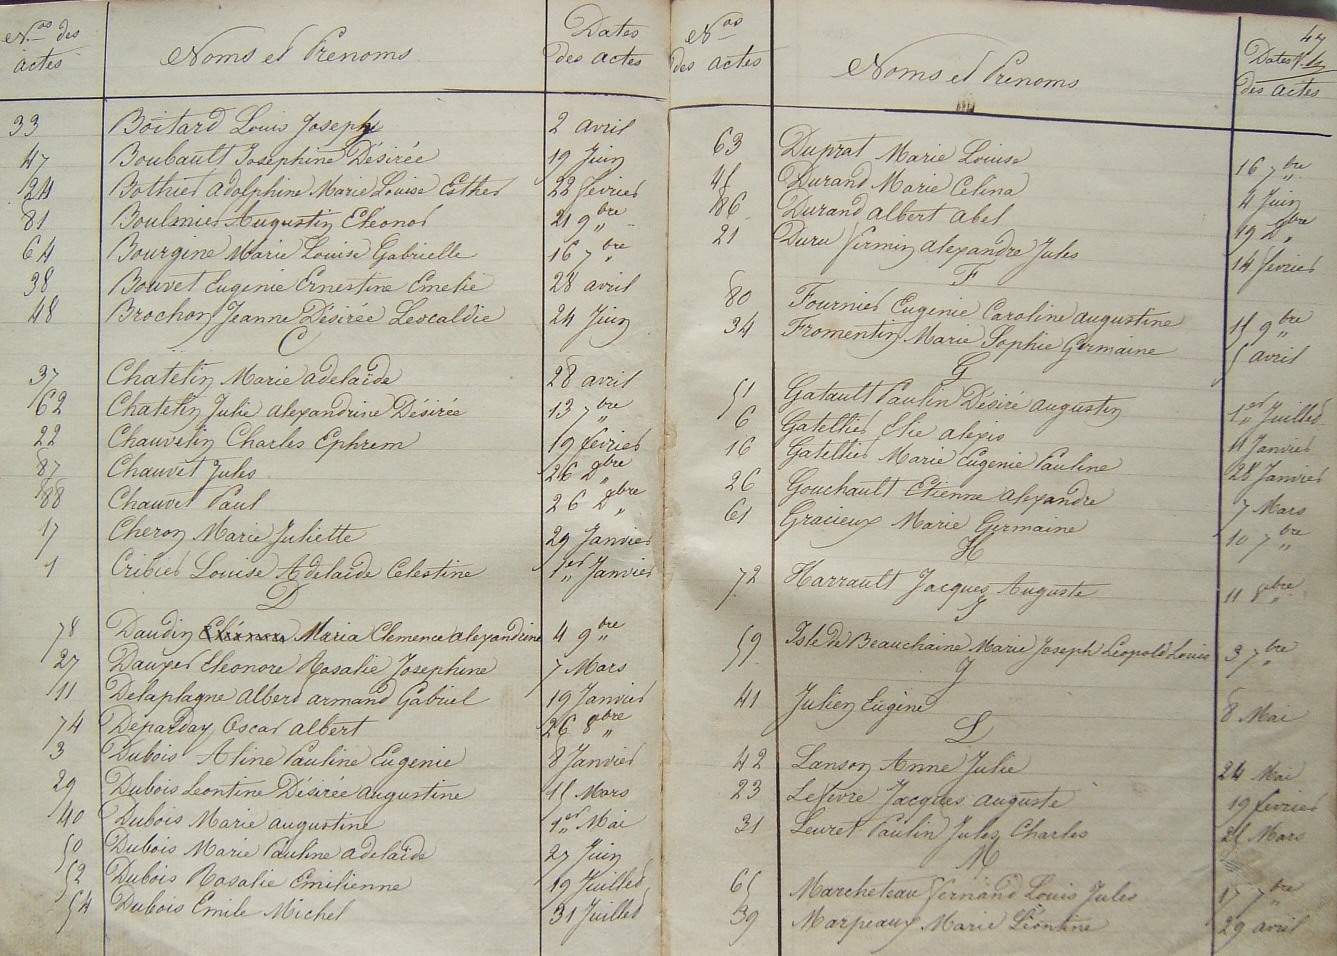 Nos des actes
Noms et Prenoms
Dates des actes
33 Boitard Louis Joseph 2 avril
47 Boubault Josephine Désirée 19 Juin
24 Bothier Adolphine Marie Louise Esther 22 fevrier
81 Boulmier Augustin Eléonor 21 9bre
64 Bourgine Marie Louise Gabrielle 16 7bre
38 Bouvet Eugenie Ernestine Emelie 28 avril
48 Brochon Jeanne Désirée Leocaldie 24 Juin
C
37 Chatelin Marie adelaïde 28 avril
62 Chatelin Julie alexandrine Désirée 13 7bre
22 Chauvelin Charles Ephrem 19 fevrier
87 Chauvet Jules 26 Dbre
88 Chauvet Paul 26 Dbre
17 Cheron Marie Juliette 29 Janvier
1 Cribier Louise Adelaïde Celestine 1er Janvier
D
78 Daudin Maria Clemence alexandrine 4 9bre
27 Dauxer Eleonore Rosalie Josephine 7 Mars
11 Delaplagne Albert armand Gabriel 19 Janvier
74 Deparday Oscar albert 26 8bre
3 Dubois Aline Pauline Eugenie 8 Janvier
29 Dubois Leontine Désirée augustine 15 Mars
40 Dubois Marie augustine 1er Mai
50 Dubois Marie Pauline adelaïde 27 Juin
52 Dubois Rosalie Emilienne 19 Juillet
54 Dubois Emile Michel 31 Juillet
47
Nos des actes
Noms et Prenoms
Dates des actes
63 Duprat Marie Louise 16 7bre
45 Durand Marie Celina 4 Juin
86 Durand albert abel 19 Dbre
21 Duru firmin alexandre Jules 14 fevrier
F
80 Fournier Eugenie Caroline augustine 15 9bre
34 Fromentin Marie Sophie Germaine 5 avril
G
51 Gatault Paulin Désiré augustin 1er Juillet
6 Gatellier Elie alexis 11 Janvier
16 Gatellier Marie Eugenie Pauline 28 Janvier
26 Gouchault Etienne alexandre 7 Mars
61 Gracieux Marie Germaine 10 7bre
H
72 Harrault Jacques Auguste 11 8bre
I
59 Isle de Beauchaine Marie Joseph Léopold Louis 3 7bre
J
41 Julien Eugène 8 Mai
L
42 Lanson Anne Julie 24 Mai
23 Lefevre Jacques auguste 19 fevrier
31 Leuret Paulin Jules Charles 25 Mars
M
65 Marcheteau fernand Louis Jules 17 7bre
39 Marpeaux Marie Léontine 29 avril